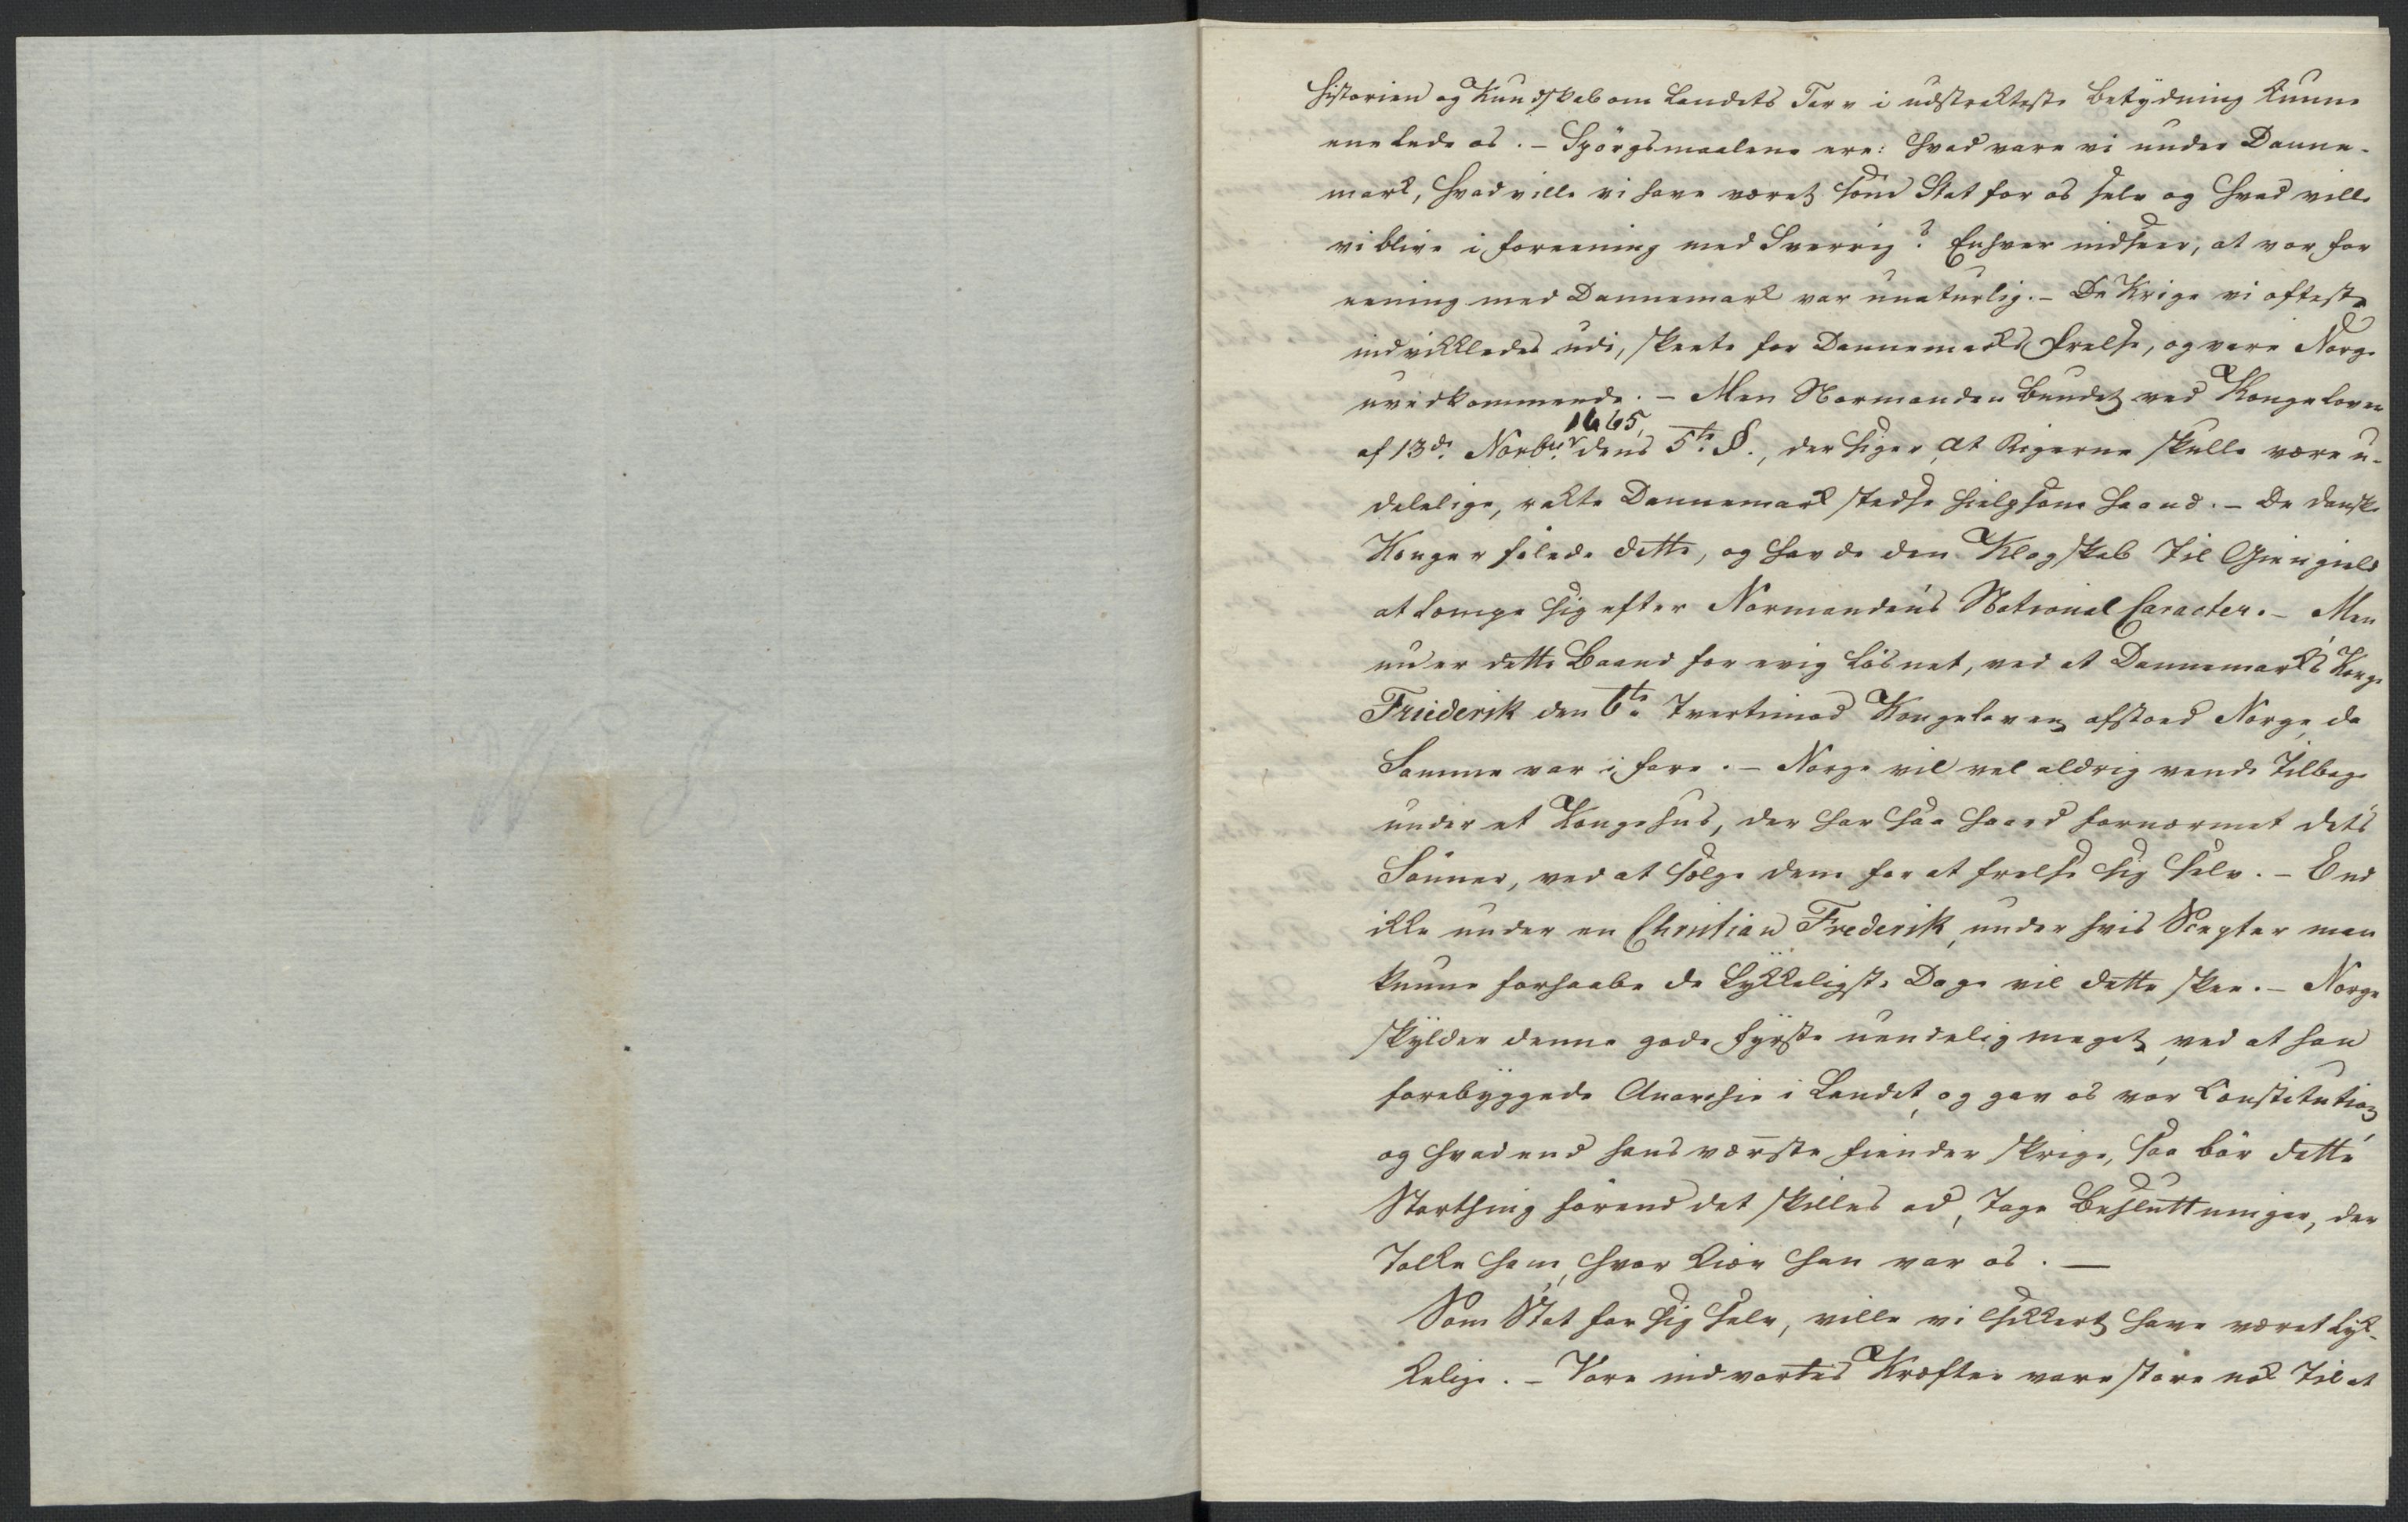 Historien og Kundskab om Landets Tarv i udstrakteste Betydning kunne
ene lede os. – Spörgsmaalene ere: Hvad vare vi under Danne-
mark, hvad ville vi have været som Stat for os selv og hvad ville
vi blive i foreening med Sverrig? Enhver indseer, at vor for
eening med Dannemark var unaturlig. – De Krige vi oftest
indvikledes udi, skeete for Dannemarks Frelse, og vare Norge
uvedkommende. – Men Normanden bundet ved Kongeloven
af 13de Novbr 1665, dens 5te §., der siger, at Rigerne skulle være u-
delelige, rakte Dannemark stedse hielpsom Haand. – De danske
Konger fölede dette, og havde den Klogskab til Giengield
at lempe sig efter Normandens National Caracter. – Men
nu er dette Baand for evig lösnet, ved at Dannemarks Konge
Friederik den 6te tvertimod Kongeloven afstoed Norge, da
Samme var i fare. – Norge vil vel aldrig vende tilbage
under et Kongehus, der har saa haard fornærmet dets
Sönner, ved at sælge dem for at frelse sig selv. – End
ikke under en Christian Frederik, under hvis Scepter man
kunne forhaabe de lykkeligste Dage vil dette skee. – Norge
skylder denne gode Fyrste uendelig meget, ved at han
forebyggede Anarchie i Landet, og gav os vor Constitution,
og hvad end hans værste fiender skrige, saa bör dette
Storthing förend det skilles ad, tage Besluttninger, der
tolke ham, hvor kiær han var os. –
Som Stat for sig selv, ville vi sikkert have været lyk-
kelige. – Vore indvortes Kræfter vare store nok til at